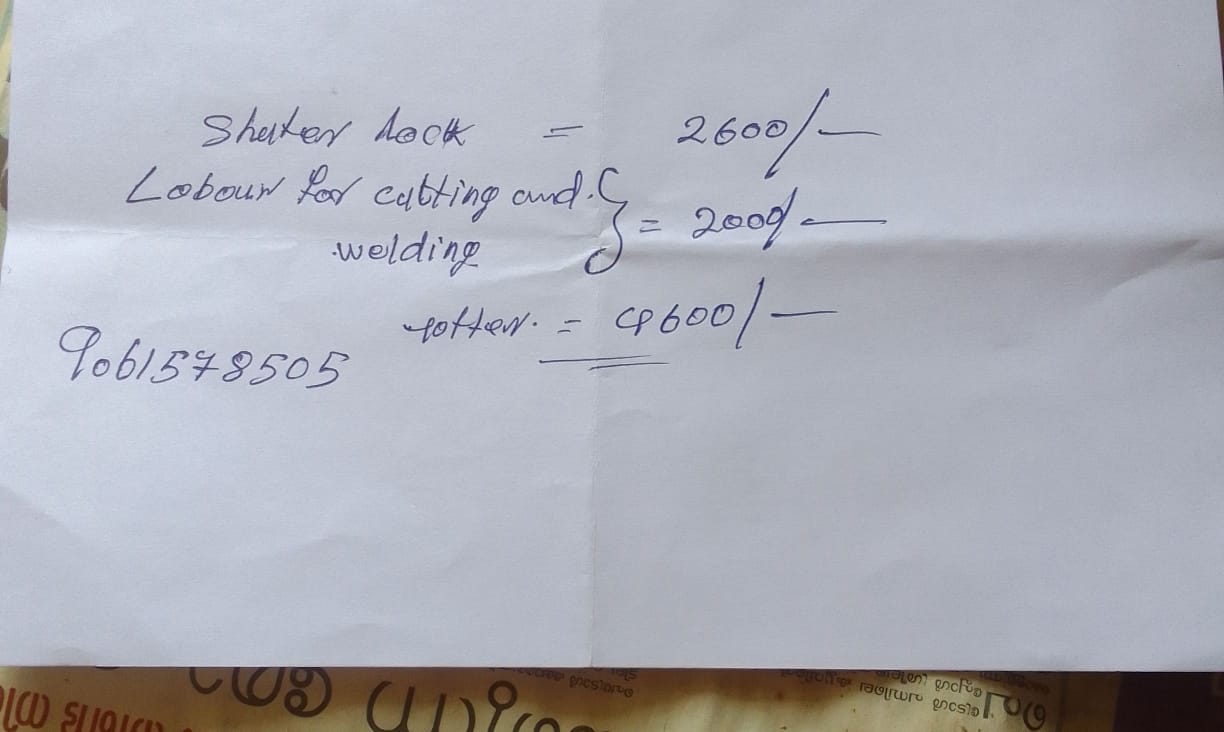 Shuter Lock = 2600/-
Labour for cutting and.
welding } = 2000/-
totter. = 4600/-
9061578505